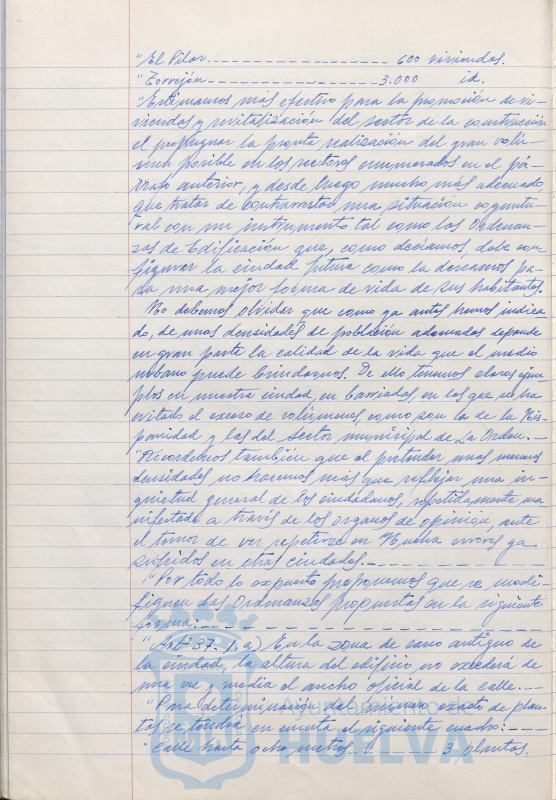 "El Pilar------------------- 600 viviendas.
"Torrejón------------------3.000 id.
"Estimamos más efectivo para la promoción de vi-
viendas y revitalización del sector de la construcción
el propugnar la pronta realización del gran volú-
men posible en los sectores enumerados en el pá-
rrafo anterior, y desde luego mucho más adecuado,
que tratar de contrarrestar una situación coyuntu-
ral con un instrumento tal como las Ordenan-
zas de Edificación que, como decíamos, debe con-
figurar la ciudad futura como la deseamos pa-
ra una mejor forma de vida de sus habitantes.
No debemos olvidar que como ya antes hemos indica-
do, de unas densidades de población adecuadas depende
en gran parte la calidad de la vida que el medio
urbano puede brindarnos. De ello tenemos claros ejem-
plos en nuestra ciudad, en barriadas, en las que se ha
evitado el exceso de volúmenes, como son la de la His-
panidad y las del Sector municipal de La Orden.-
"Recordemos también que al pretender unas menores
densidades no hacemos más que reflejar una in-
quietud general de los ciudadanos, repetidamente ma
nifestada a través de los órganos de opinión, ante
el temor de ver repetirse en Huelva errores ya
sufridos en otras ciudades.----------------
"Por todo lo expuesto proponemos que se modi-
fiquen las Ordenanzas propuestas en la siguiente
forma:------------------------------
"Artº 37.- 1. a) En la zona de casco antiguo de
la ciudad, la altura del edificio no excederá de
una vez y media el ancho oficial de la calle.--
"Para determinación del número exacto de plan-
tas, se tendrá en cuenta el siguiente cuadro:----
"Calle hasta ocho metros --------- 3 plantas.
Ayuntamiento de
HUELVA